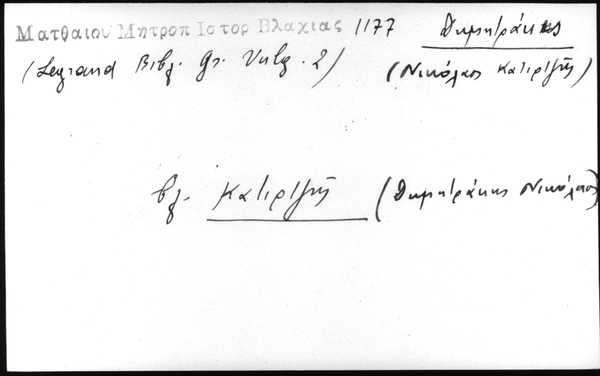 Ματθαιου Μητροπ Ιστορ Βλαχιας 1177 Δημητράκης
(Legrand Bibl. Gr. Vulg. 2) (Νικόλαος Κατιρτζῆς)
βλ. Κατιρτζῆ (Δημητράκης Νικόλαος)